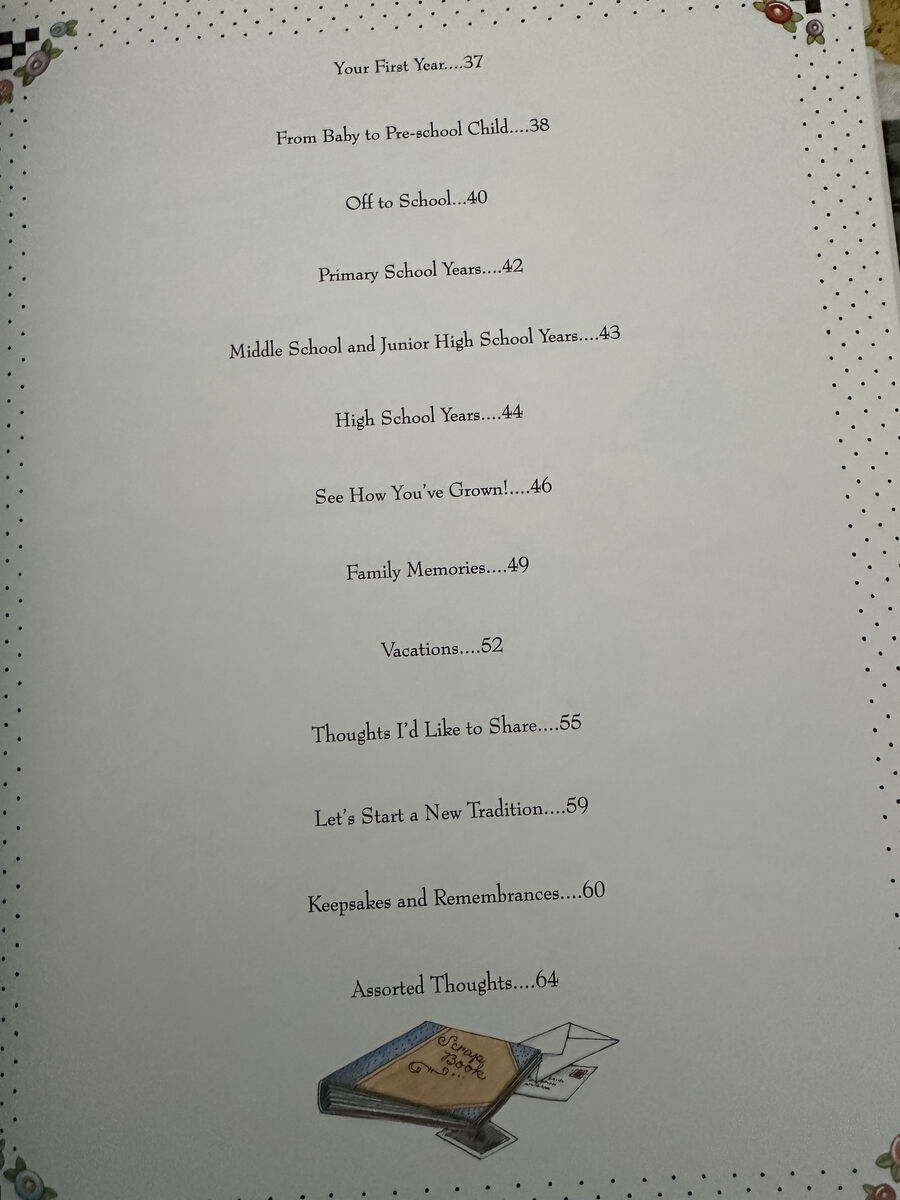 Your First Year....37
From Baby to Pre-school Child....38
Off to School...40
Primary School Years....42
Middle School and Junior High School Years....43
High School Years....44
See How You've Grown!....46
Family Memories....49
Vacations....52
Thoughts I'd Like to Share....55
Let's Start a New Tradition....59
Keepsakes and Remembrances....60
Assorted Thoughts....64
Scrap
Book